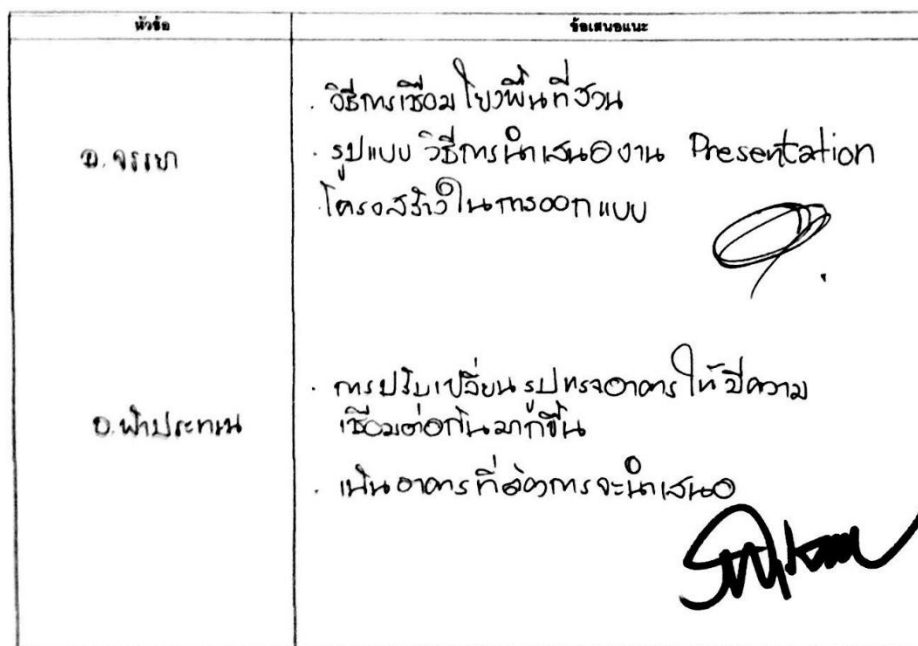 หัวข้อ
ข้อเสนอแนะ
อ. จรรยา
. วิธีการเชื่อมโยงพื้นที่สวน
. รูปแบบ วิธีการนำเสนองาน Presentation
. โครงสร้างในการออกแบบ
อ. ฟ้าประทาน
. การปรับเปลี่ยนรูปทรงอาคารให้มีความ
เชื่อมต่อกันมากขึ้น
. เน้นอาคารที่ต้องการจะนำเสนอ